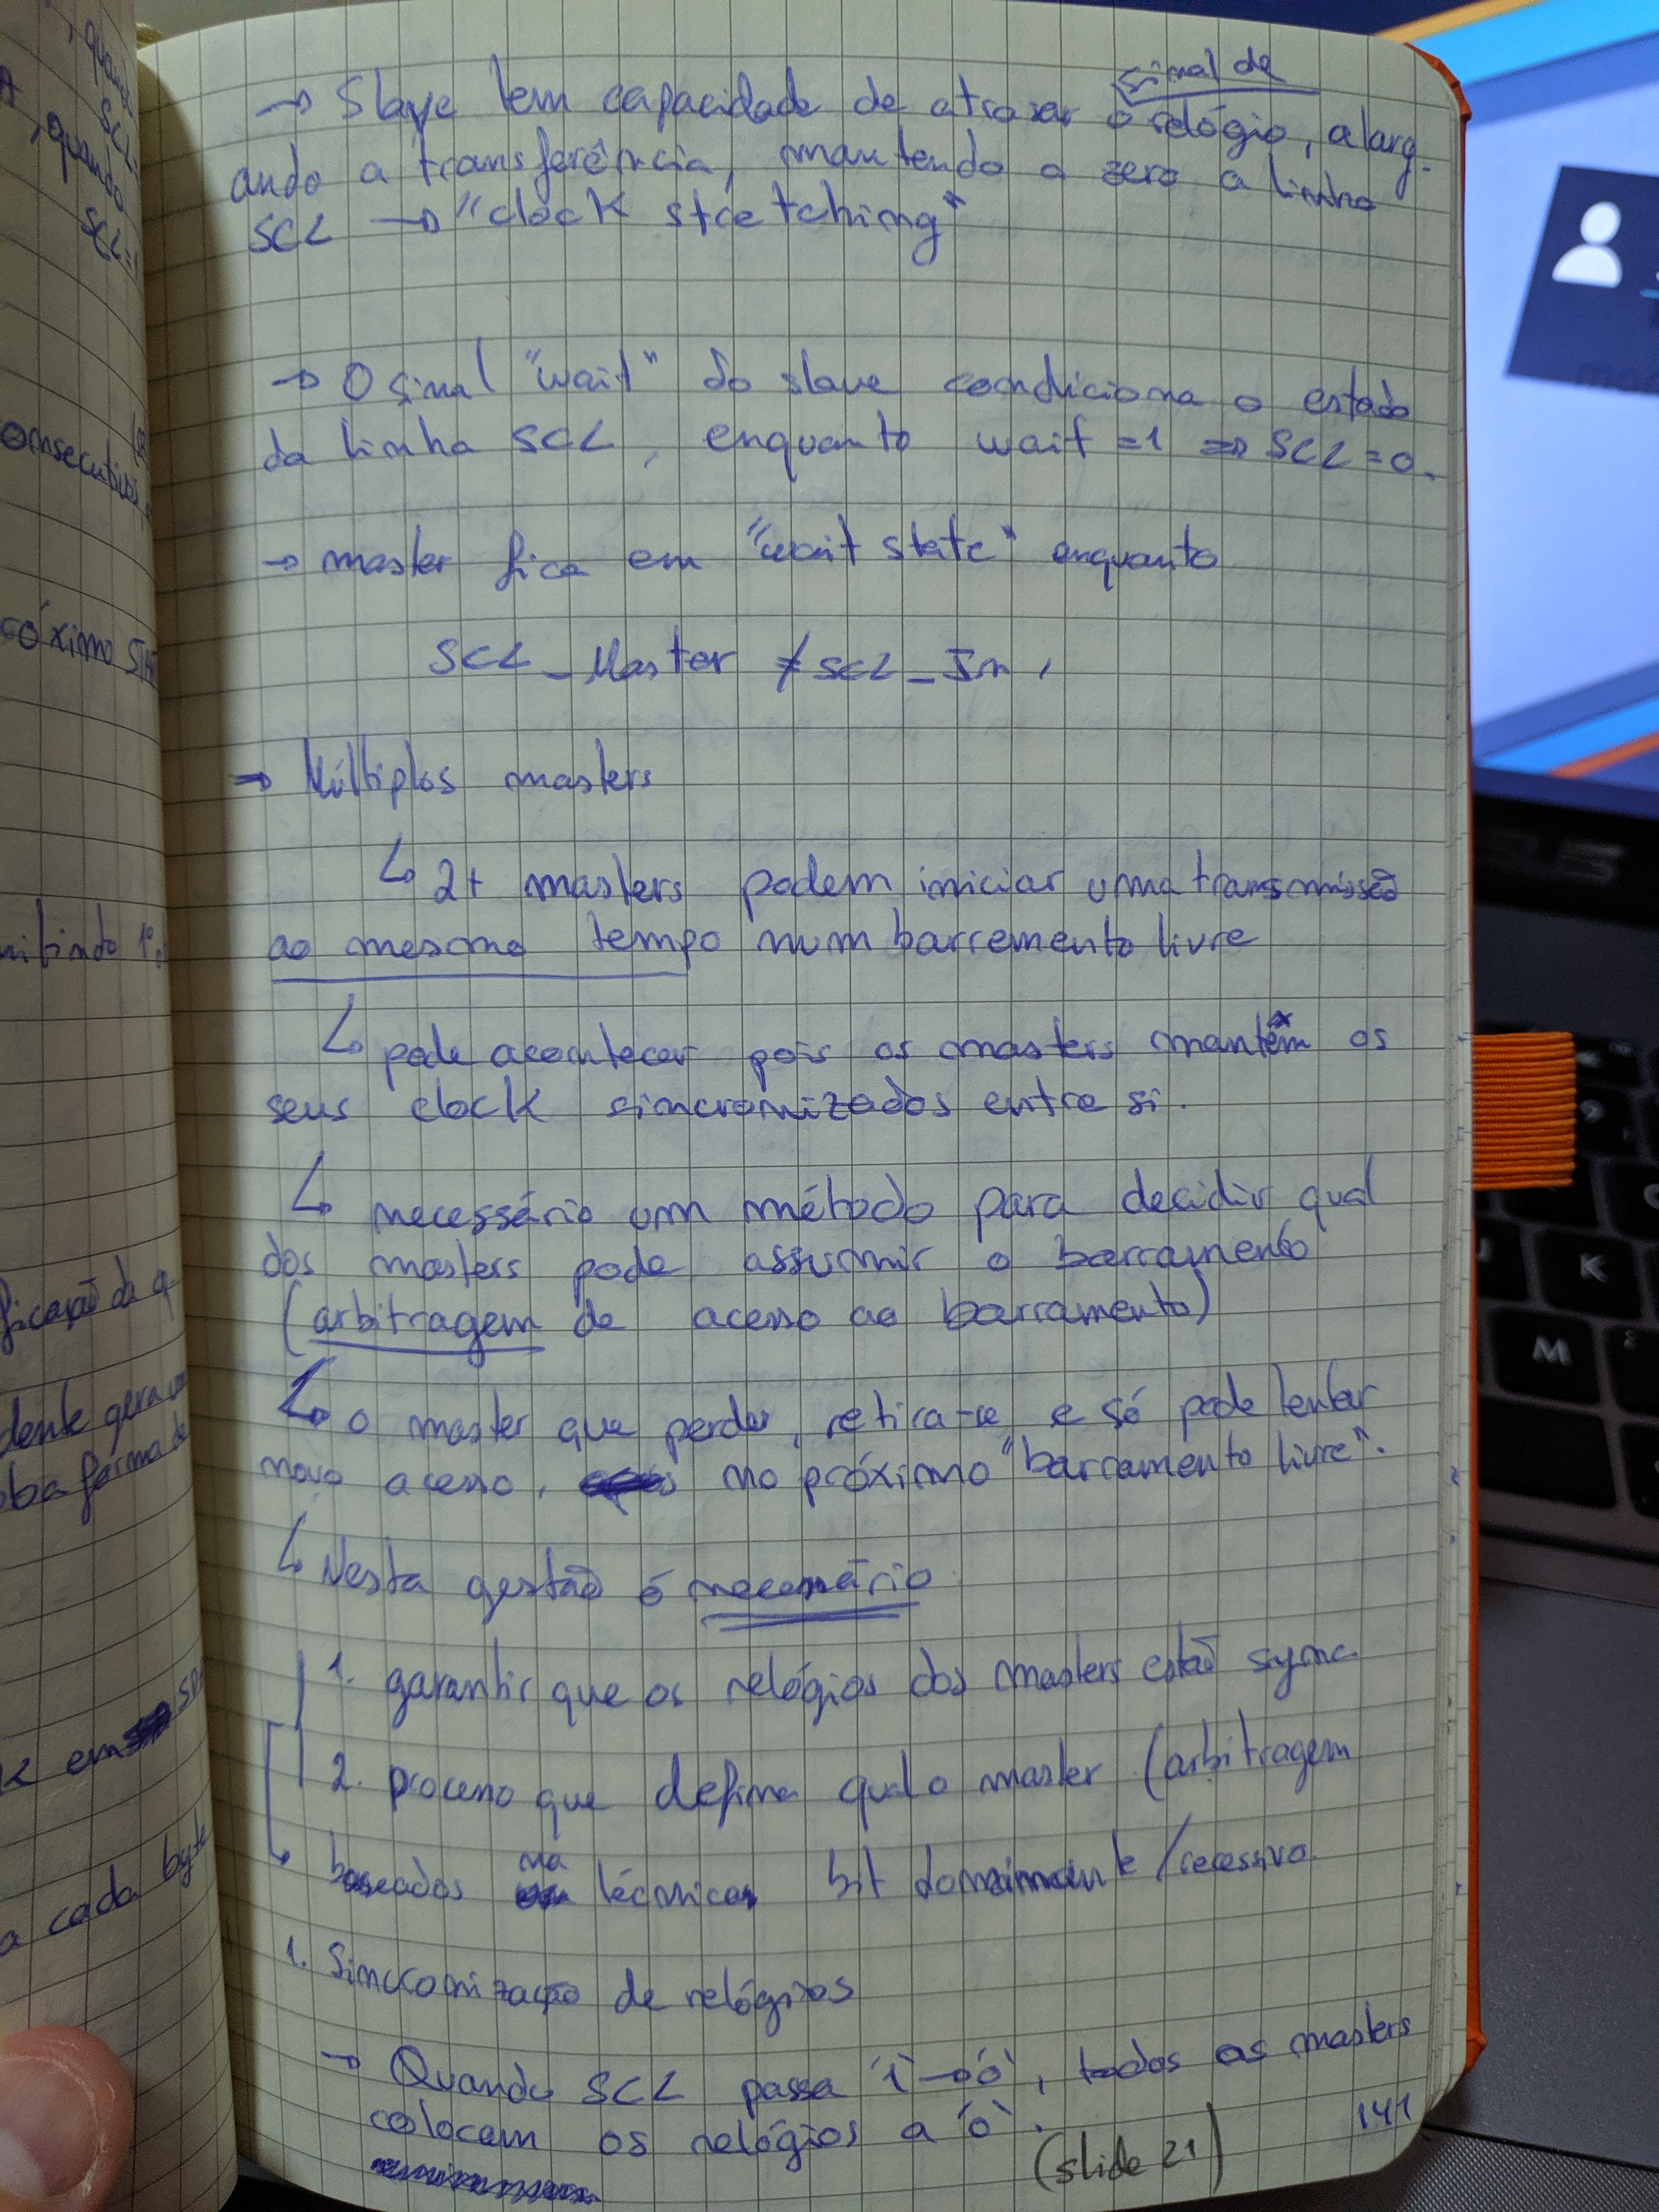 sinal de
→ Slave tem capacidade de atrasar o relógio, alarg-
ando a transferência, mantendo a zero a linha
SCL → "clock stretching"
→ O sinal "wait" do slave condiciona o estado
da linha SCL, enquanto wait = 1 ⇒ SCL = 0.
→ master fica em "wait state" enquanto
SCL_Master ≠ SCL_In,
→ Múltiplos masters
↳ 2+ masters podem iniciar uma transmissão
ao mesmo tempo num barramento livre
↳ pode acontecer pois os masters mantêm os
seus clock sincronizados entre si.
↳ necessário um método para decidir qual
dos masters pode assumir o barramento
(arbitragem de acesso ao barramento)
↳ o master que perder, retira-se e só pode tentar
novo acesso, no próximo "barramento livre".
↳ Nesta gestão é necessário
1. garantir que os relógios dos masters estão sync.
2. processo que defina qual o master (arbitragem
↳ baseados na técnicas bit dominante/recessivo.
1. Sincronização de relógios
→ Quando SCL passa '1'→'0', todos os masters
colocam os relógios a '0'.
(slide 21)
141
, quando
SCL=
, quando
SCL=1
onsecutivos
óximo
nitindo 1º
ficação da
dente gera
forma de
em
a cada byte
K
M